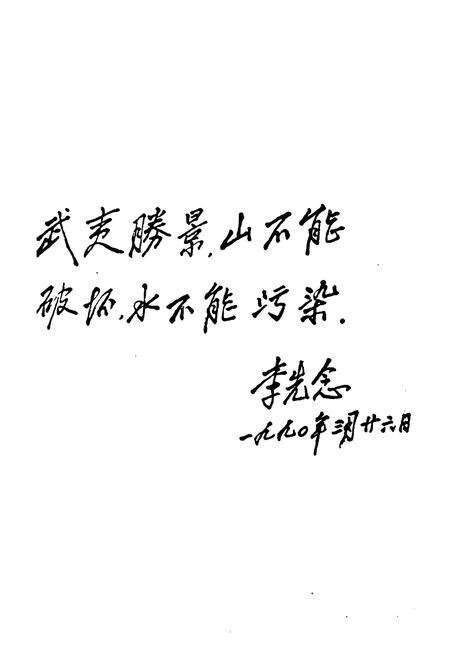 武夷勝景,山不能
破坏,水不能污染.
李先念
一九九〇年三月廿六日